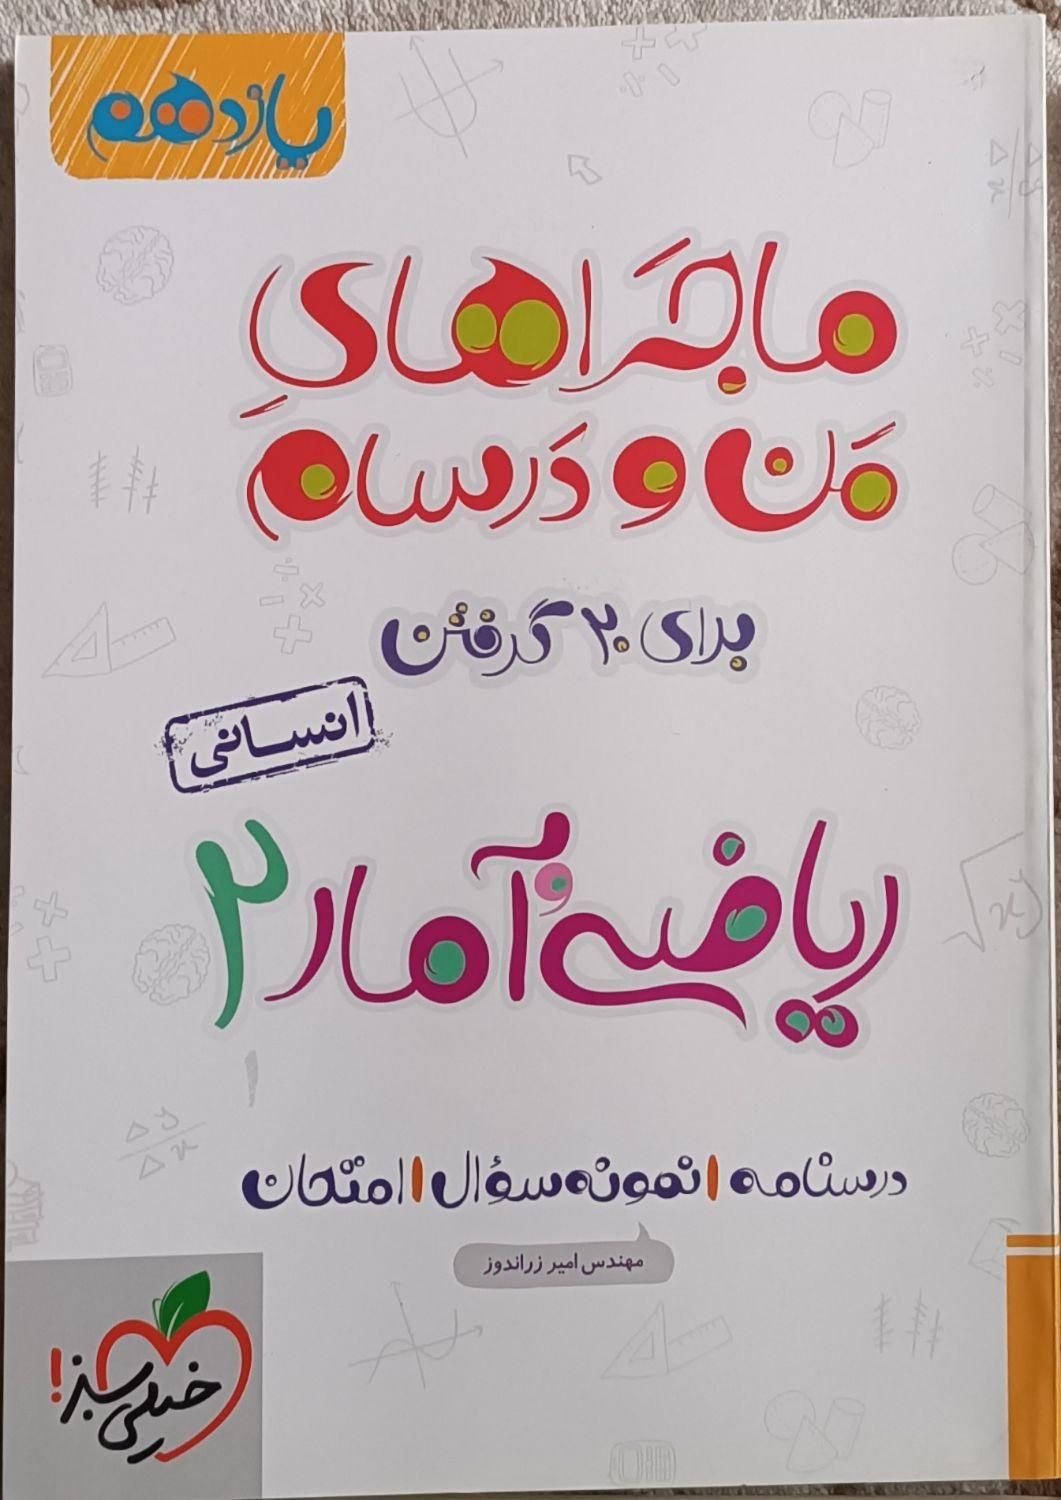 یازدهم
ماجراهایِ
مَن و دَرسام
برای ۲۰ گرفتن
انسانی
ریاضی و آمار ۲
درسنامه | نمونه سؤال | امتحان
مهندس امیر زراندوز
خیلی سبز!